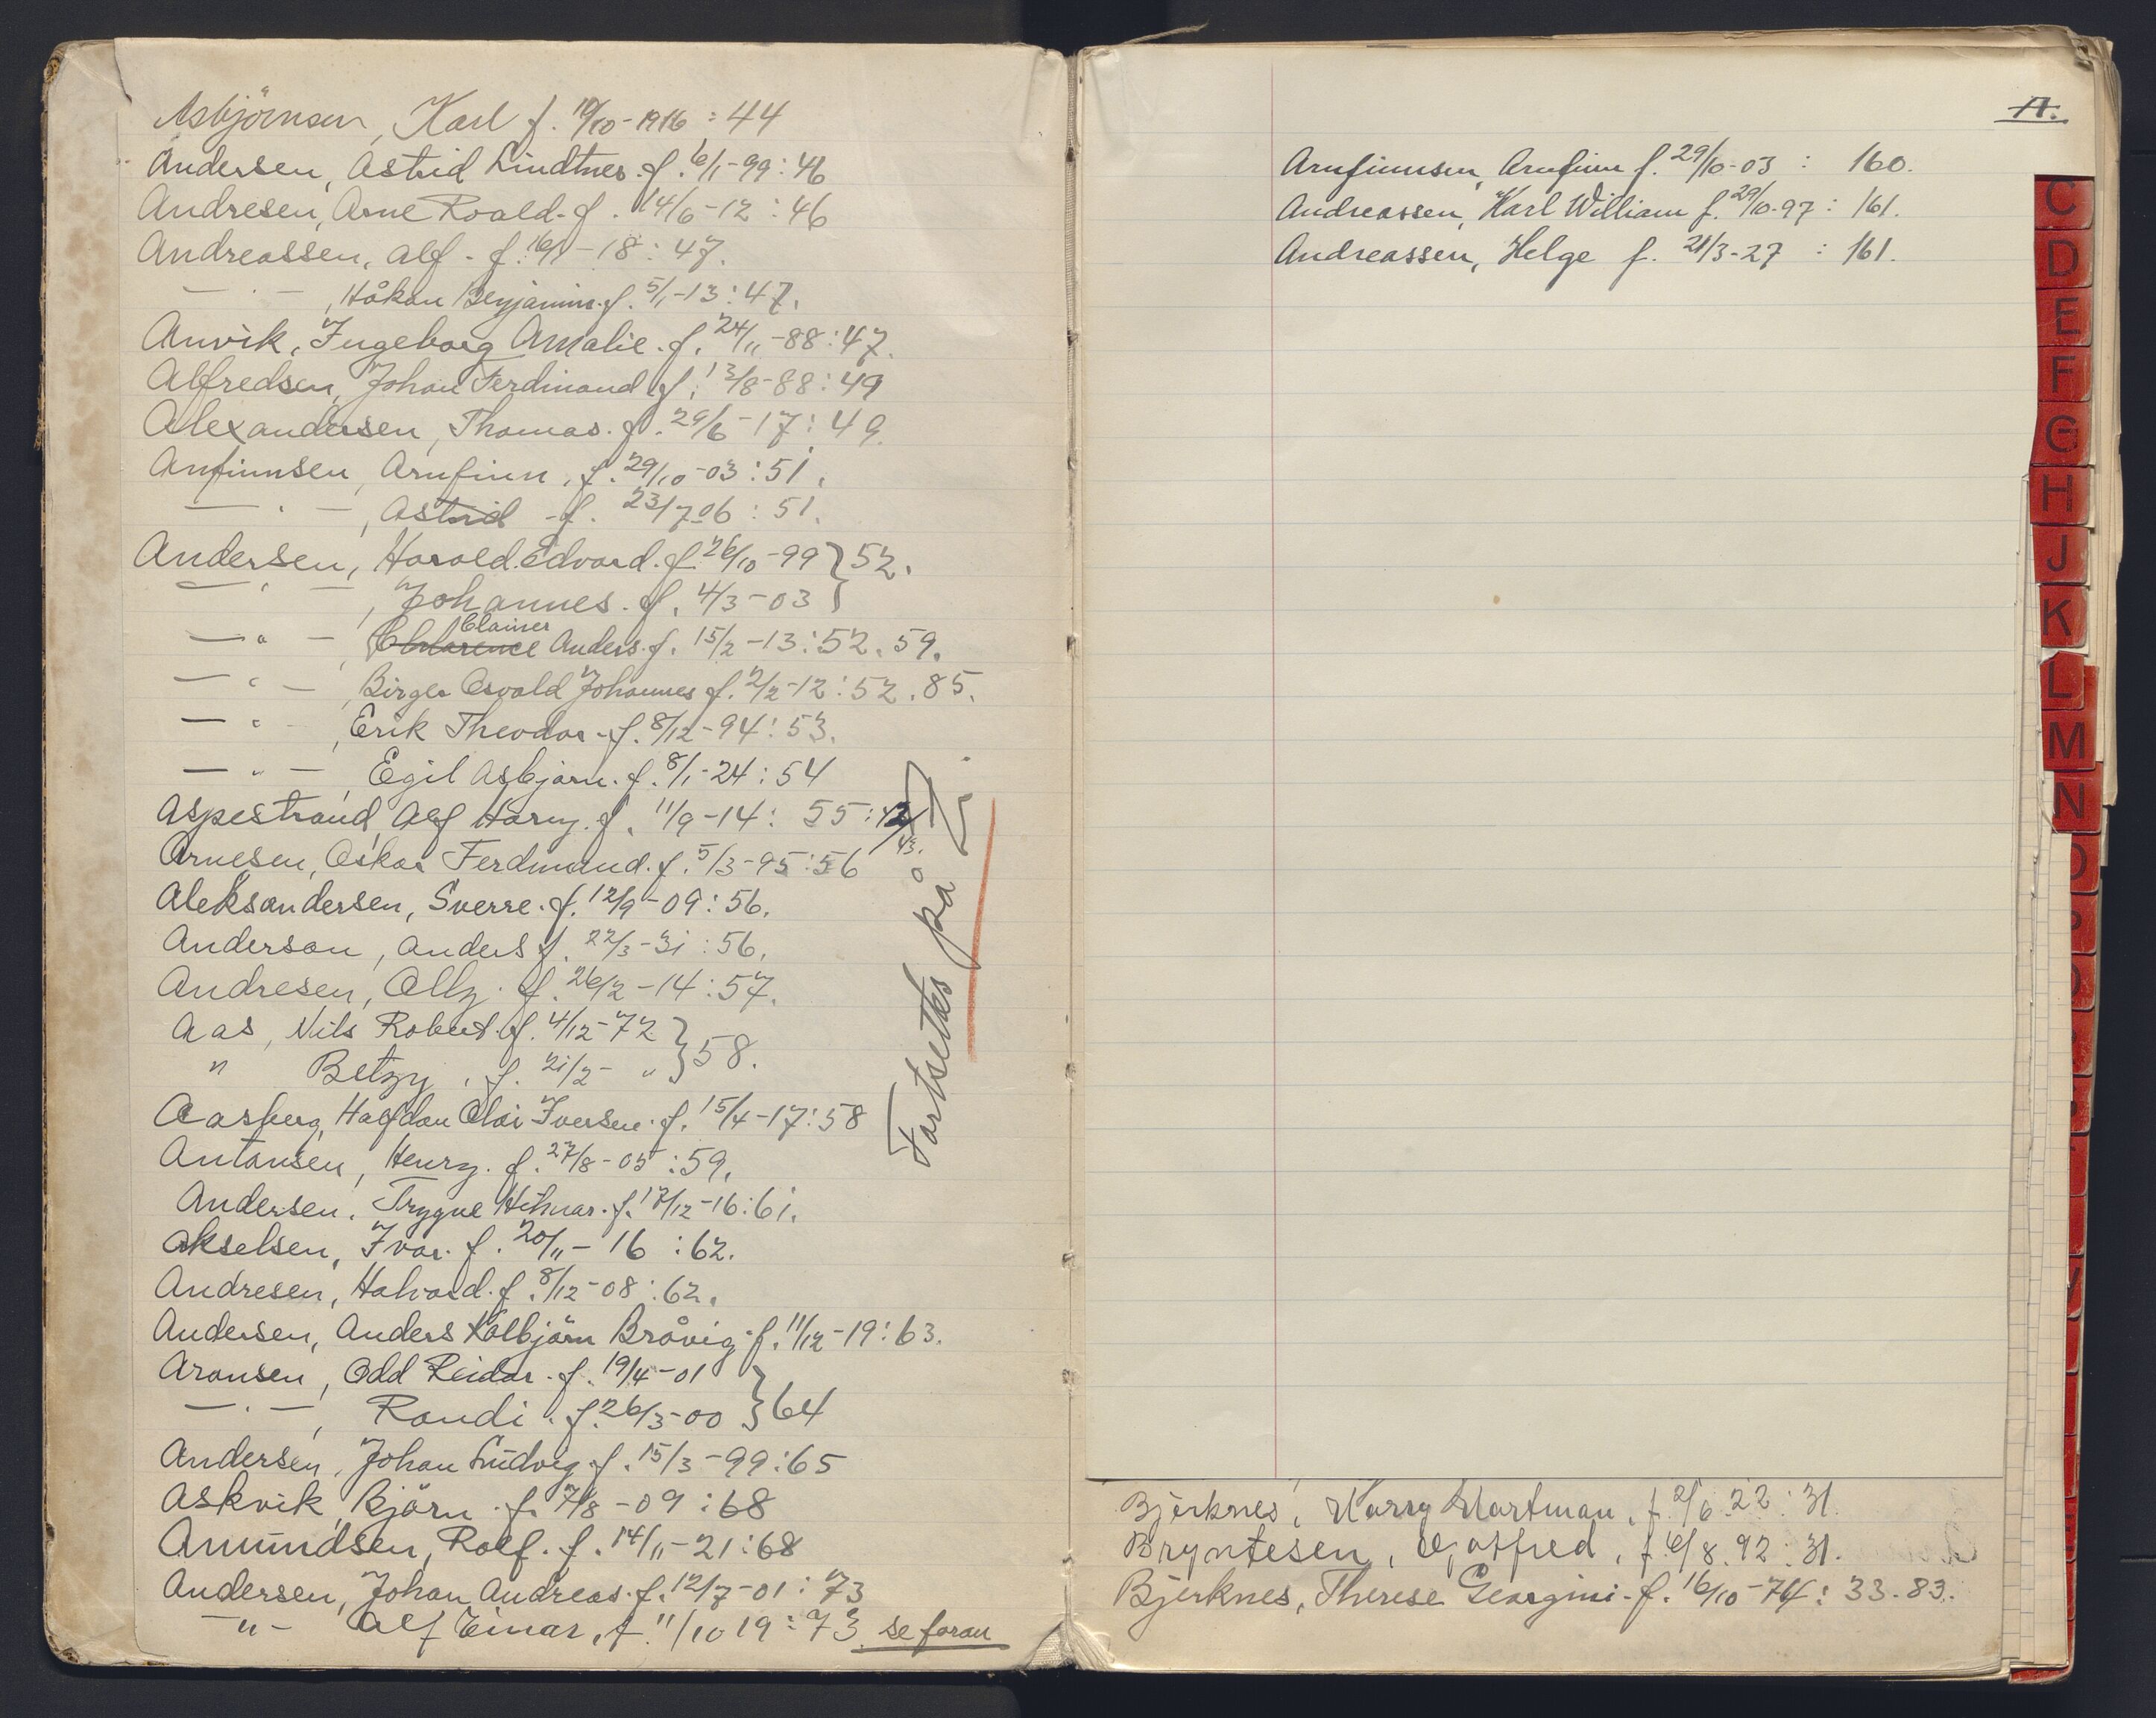 Asbjörnsen, Karl f. 19/10-1916 : 44
Andersen, Astrid Lindtnes. f. 6/1-99 : 46
Andresen, Arne Roald. f. 14/6-12 : 46
Andreassen, Alf - f. 16/1-18 : 47.
— " — , Håkon Benjamin. f. 5/1-13 : 47.
Anvik, Ingeborg Amalie. f. 24/11-88 : 47.
Alfredsen, Johan Ferdinand. f. 13/8-88 : 49
Alexandersen, Thomas. f. 29/6-17 : 49.
Arnfinnsen, Arnfinn, f. 29/10-03 : 51.
— " — , Astrid - f. 23/7-06 : 51.
Andersen, Harald Edvard. f. 26/10-99 } 52.
— " — , Johannes. f. 4/3-03 }
— " — , Clarence Clainer Anders. f. 15/2-13 : 52. 59.
— " — , Birger Osvald Johannes f. 2/2-12 : 52. 85.
— " — , Erik Theodor - f. 8/12-94 : 53.
— " — , Egil Asbjørn. f. 8/1-24 : 54
Aspestrand, Alf Harry. f. 11/9-14 : 55 : 42/43.
Arnesen, Oskar Ferdinand. f. 5/3-95 : 56
Aleksandersen, Sverre. f. 12/9-09 : 56.
Anderson, Anders f. 22/3-31 : 56.
Andresen, Olly. f. 26/2-14 : 57.
Aas, Nils Robert. f. 4/12-72 } 58.
" Betzy, f. 21/2- " }
Aasberg, Halfdan Olai Iversen. f. 15/4-17 : 58
Antonsen, Henry. f. 27/8-05 : 59.
Andersen, Trygve Hilmar. f. 17/12-16 : 61.
Akselsen, Ivar. f. 20/11-16 : 62.
Andresen, Halvard. f. 8/12-08 : 62.
Andersen, Anders Kolbjörn Bråvig - f. 11/12-19 : 63.
Aronsen, Odd Reidar. f. 19/4-01 } 64
— " — , Randi. f. 26/3-00 }
Andersen, Johan Ludvig. f. 15/3-99 : 65
Askvik, Björn. f. 7/8-09 : 68
Amundsen, Rolf. f. 14/11-21 : 68
Andersen, Johan Andreas. f. 12/7-01 : 73
— " — Alf Einar, f. 11/10 19 : 73 se foran
Fortsettes på Z.
A.
Arnfinnsen, Arnfinn f. 29/10-03 : 160.
Andreassen, Karl William f. 29/10-97 : 161.
Andreassen, Helge f. 21/3-27 : 161.
Bjerknes, Harry Hartman, f. 2/6 22 : 31.
Bryntesen, Gotfred, f. 6/8. 92 : 31.
Bjerknes, Therese Georgini - f. 16/10-74 : 33. 83.
C
D
E
F
G
H
J
K
L
M
N
O